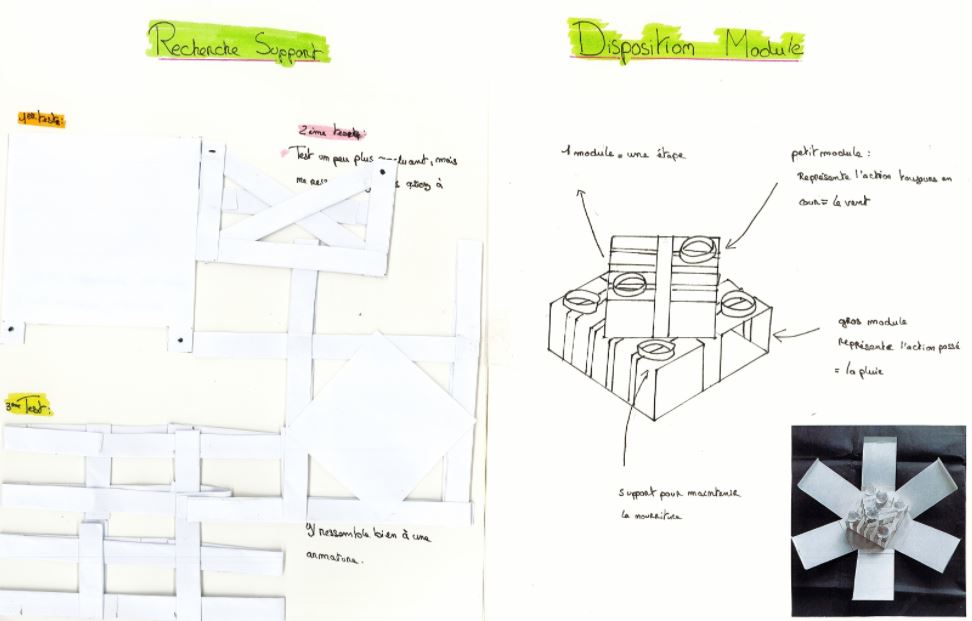 Recherche Support
1er test:
2ème test:
Test un peu plus
mais
à
3ème Test:
Il ressemble bien à une
armature.
Disposition Module
1 module = une étape
petit module :
Représente l'action toujours en
cour = le vent
gros module
Représente l'action passé
= la pluie
Support pour maintenir
la nourriture